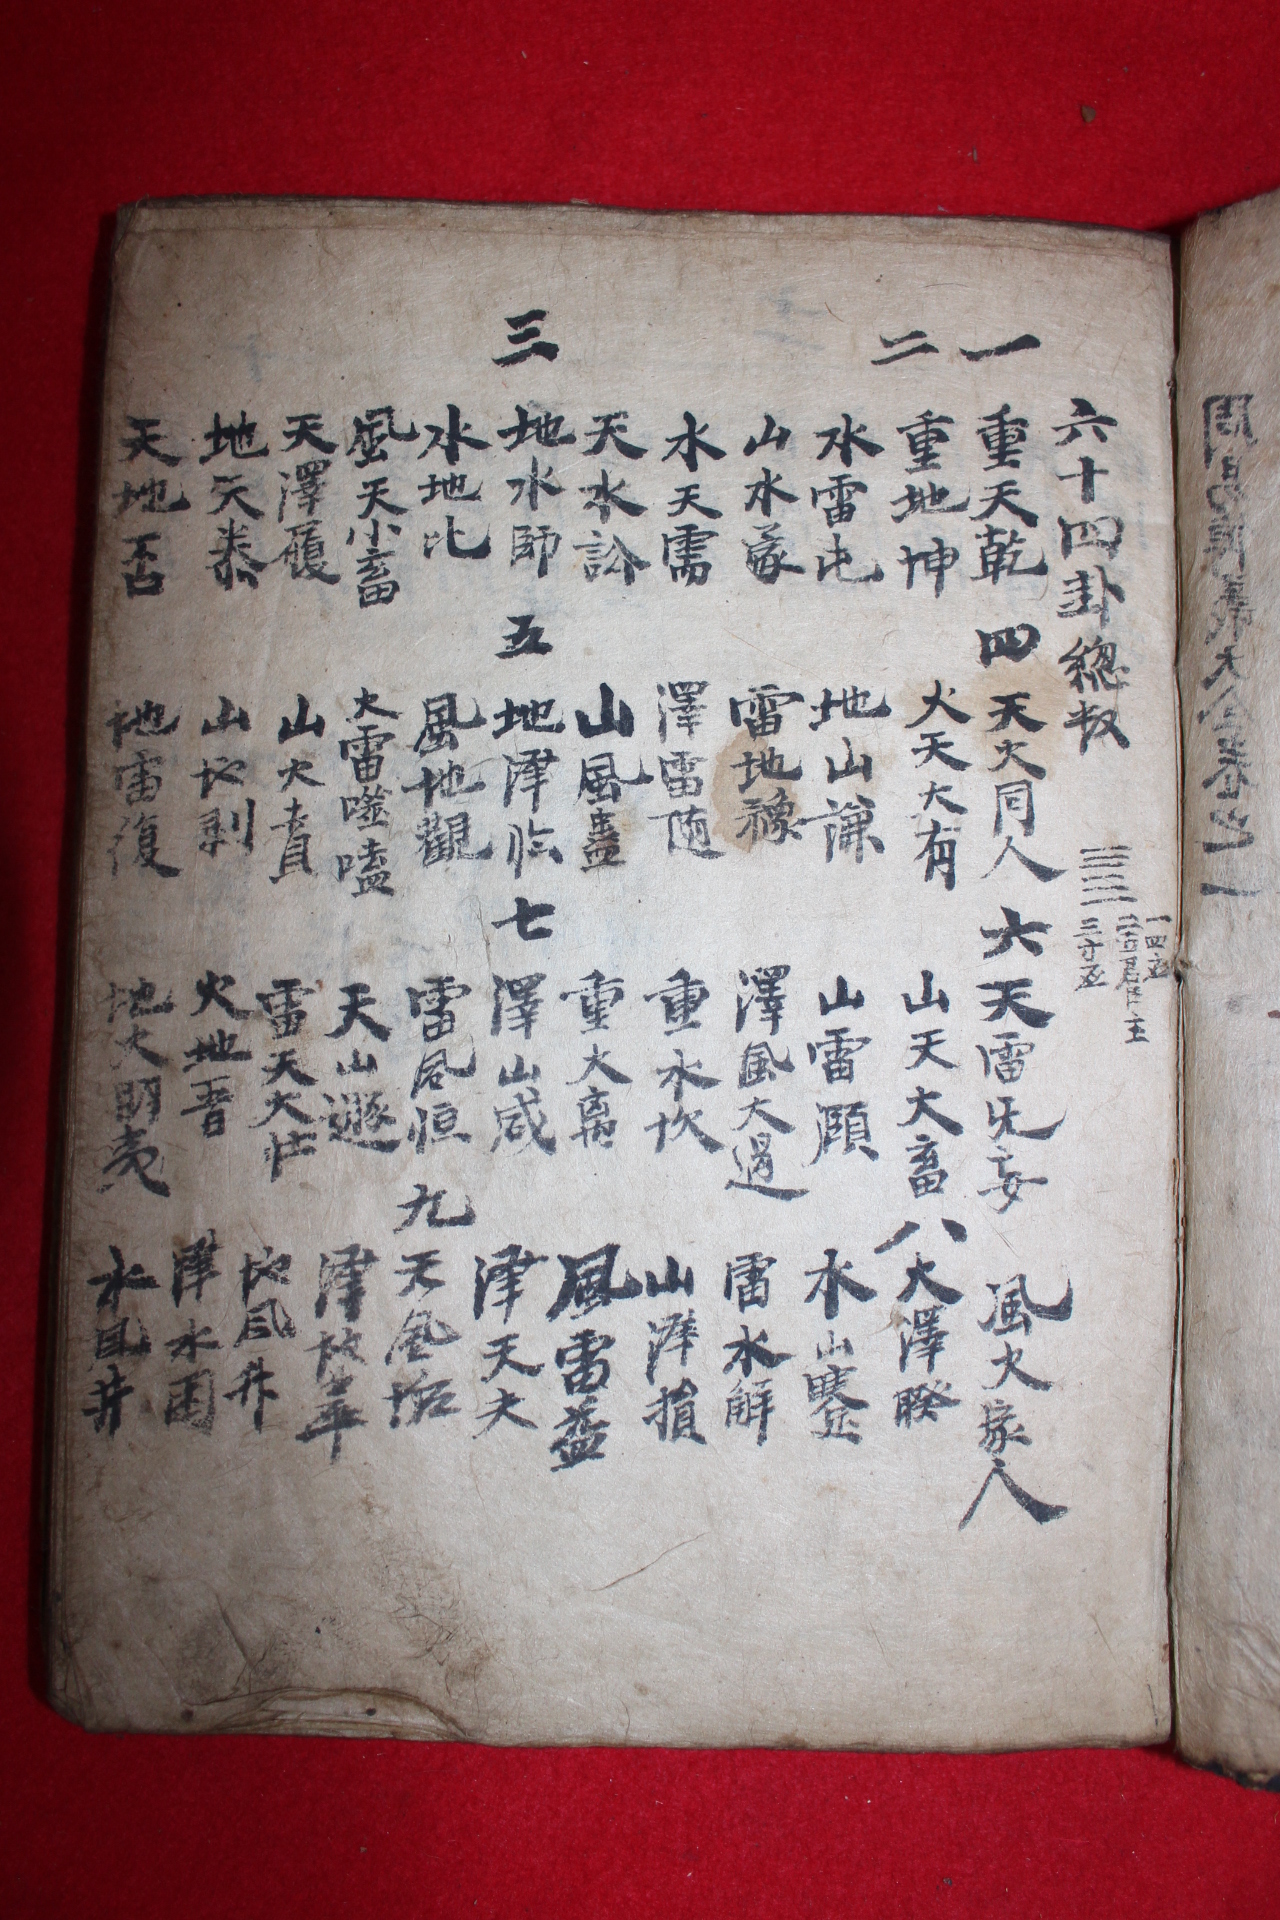 周易傳義大全卷之一
六十四卦總
一
重天乾
二
重地坤
水雷屯
山水蒙
水天需
天水訟
三
地水師
水地比
風天小畜
天澤履
地天泰
天地否
四
天火同人
火天大有
地山謙
雷地豫
澤雷隨
山風蠱
五
地澤臨
風地觀
火雷噬嗑
山火賁
山地剝
地雷復
六
天雷无妄
山天大畜
山雷頤
澤風大過
重水坎
重火離
七
澤山咸
雷風恒
天山遯
雷天大壯
火地晉
地火明夷
風火家人
八
火澤睽
水山蹇
雷水解
山澤損
風雷益
澤天夬
九
天風姤
澤地萃
地風升
澤水困
水風井